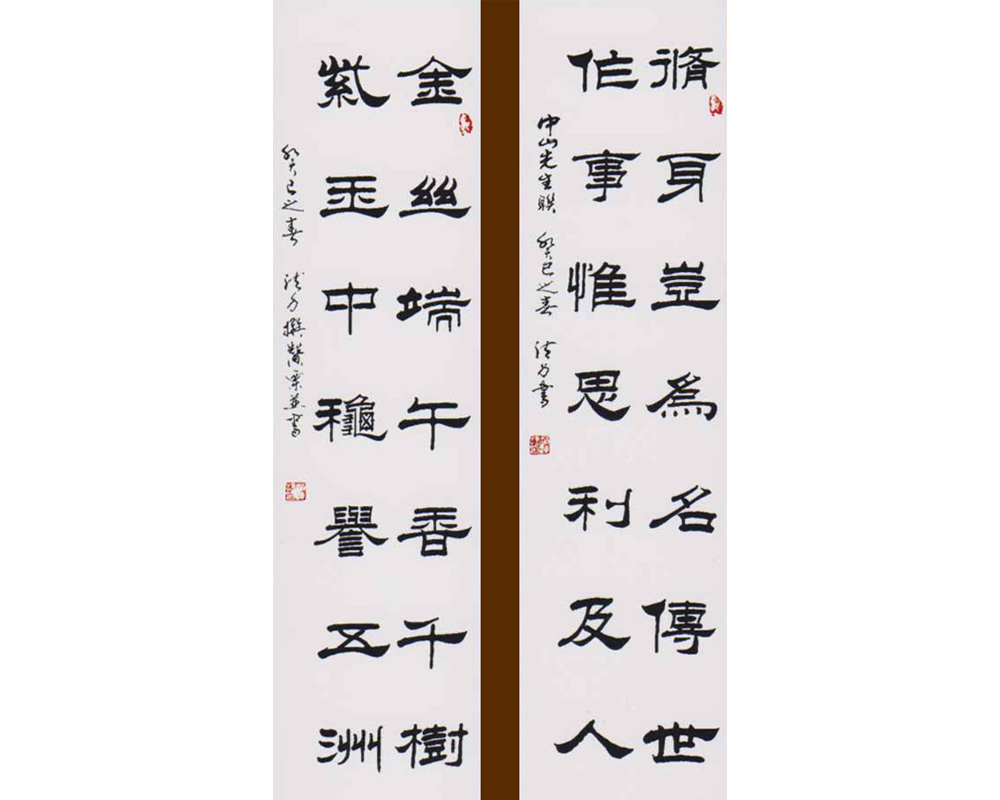 脩身豈為名傳世
作事惟思利及人
中山先生聯 癸巳之春 書
金絲端午香千樹
紫玉中龝譽五洲
癸巳之春 撰贊栗並書